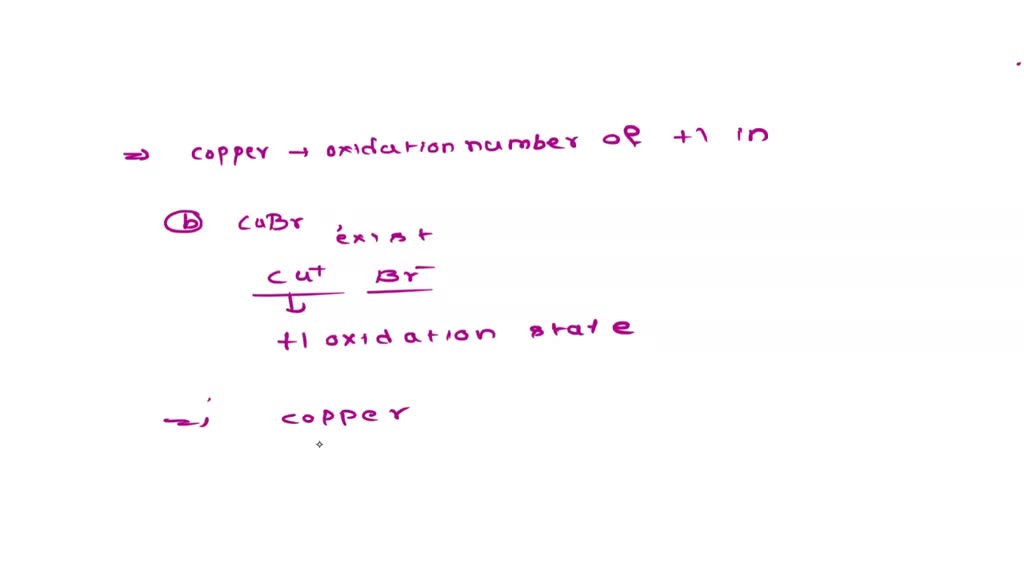 ⇒ copper → oxidation number of +1 in
(b) CuBr exist
Cu⁺ Br⁻
↓
+1 oxidation state
⇒ copper